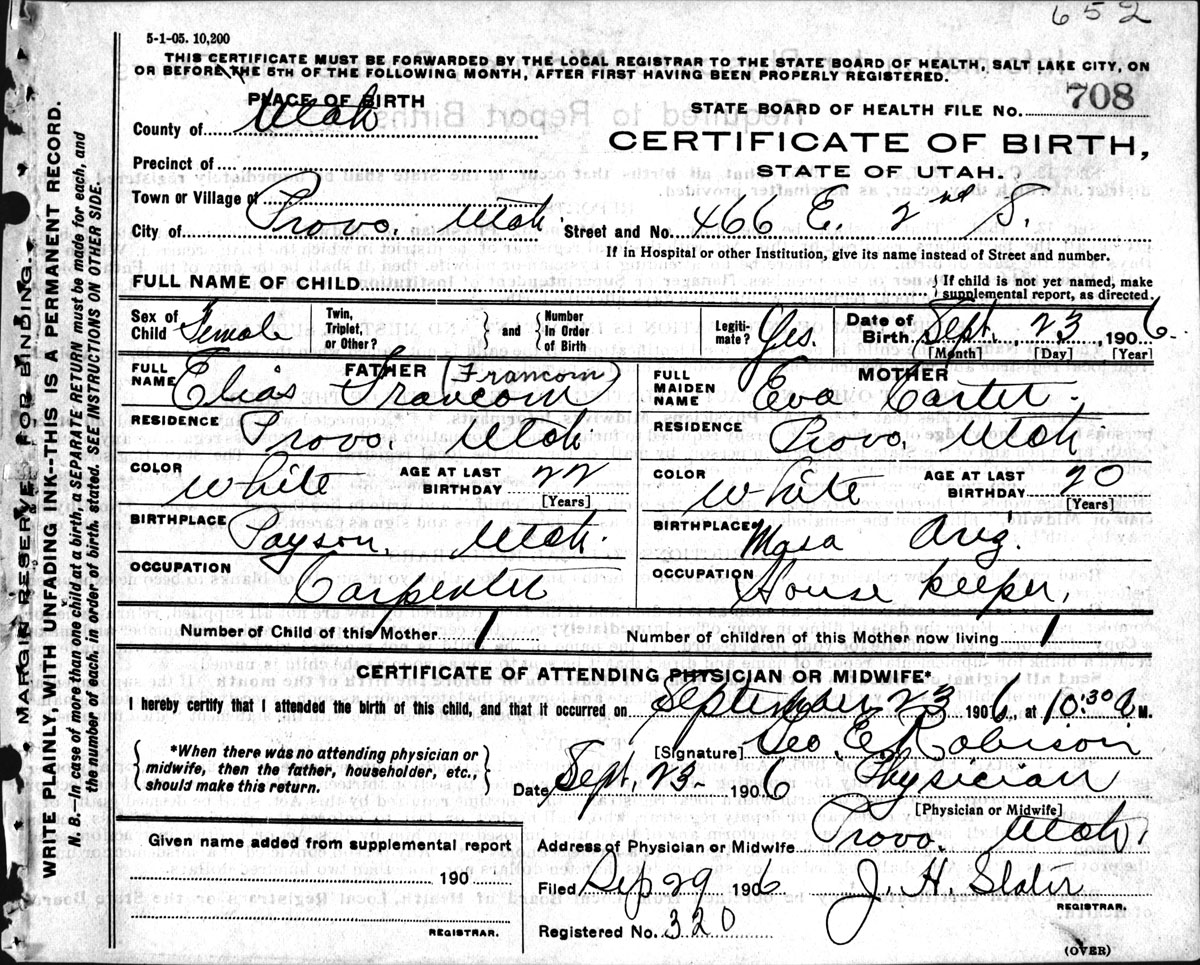 652
5-1-05. 10,200
THIS CERTIFICATE MUST BE FORWARDED BY THE LOCAL REGISTRAR TO THE STATE BOARD OF HEALTH, SALT LAKE CITY, ON
OR BEFORE THE 5TH OF THE FOLLOWING MONTH, AFTER FIRST HAVING BEEN PROPERLY REGISTERED.
PLACE OF BIRTH
STATE BOARD OF HEALTH FILE No. 708
County of Utah
CERTIFICATE OF BIRTH,
Precinct of
STATE OF UTAH.
Town or Village of
City of Provo, Utah. Street and No. 466 E. 2nd S.
If in Hospital or other Institution, give its name instead of Street and number.
FULL NAME OF CHILD { If child is not yet named, make supplemental report, as directed.
Sex of Child Female Twin, Triplet, or Other? } and { Number In Order of Birth Legiti-mate? Yes. Date of Birth Sept. , 23 , 1906.
[Month] [Day] [Year]
FULL NAME FATHER (Francom) Elias Francom
FULL MAIDEN NAME MOTHER Eva Carter.
RESIDENCE Provo, Utah
RESIDENCE Provo, Utah
COLOR White AGE AT LAST BIRTHDAY 22 [Years]
COLOR White AGE AT LAST BIRTHDAY 20 [Years]
BIRTHPLACE Payson, Utah.
BIRTHPLACE Mesa Ariz.
OCCUPATION Carpenter
OCCUPATION House keeper,
Number of Child of this Mother 1 Number of children of this Mother now living 1
CERTIFICATE OF ATTENDING PHYSICIAN OR MIDWIFE*
I hereby certify that I attended the birth of this child, and that it occurred on September 23 1906, at 10:30 a M.
{ *When there was no attending physician or midwife, then the father, householder, etc., should make this return. }
[Signature] Geo. E. Robison
Date Sept. 23. 1906 Physician
[Physician or Midwife]
Given name added from supplemental report
Address of Physician or Midwife Provo, Utah.
190
Filed Sep 29 1906 J. H. Slater
REGISTRAR.
REGISTRAR.
Registered No. 320
(OVER)
MARGIN RESERVED FOR BINDING.
WRITE PLAINLY, WITH UNFADING INK--THIS IS A PERMANENT RECORD.
N. B.--In case of more than one child at a birth, a SEPARATE RETURN must be made for each, and
the number of each, in order of birth, stated. SEE INSTRUCTIONS ON OTHER SIDE.